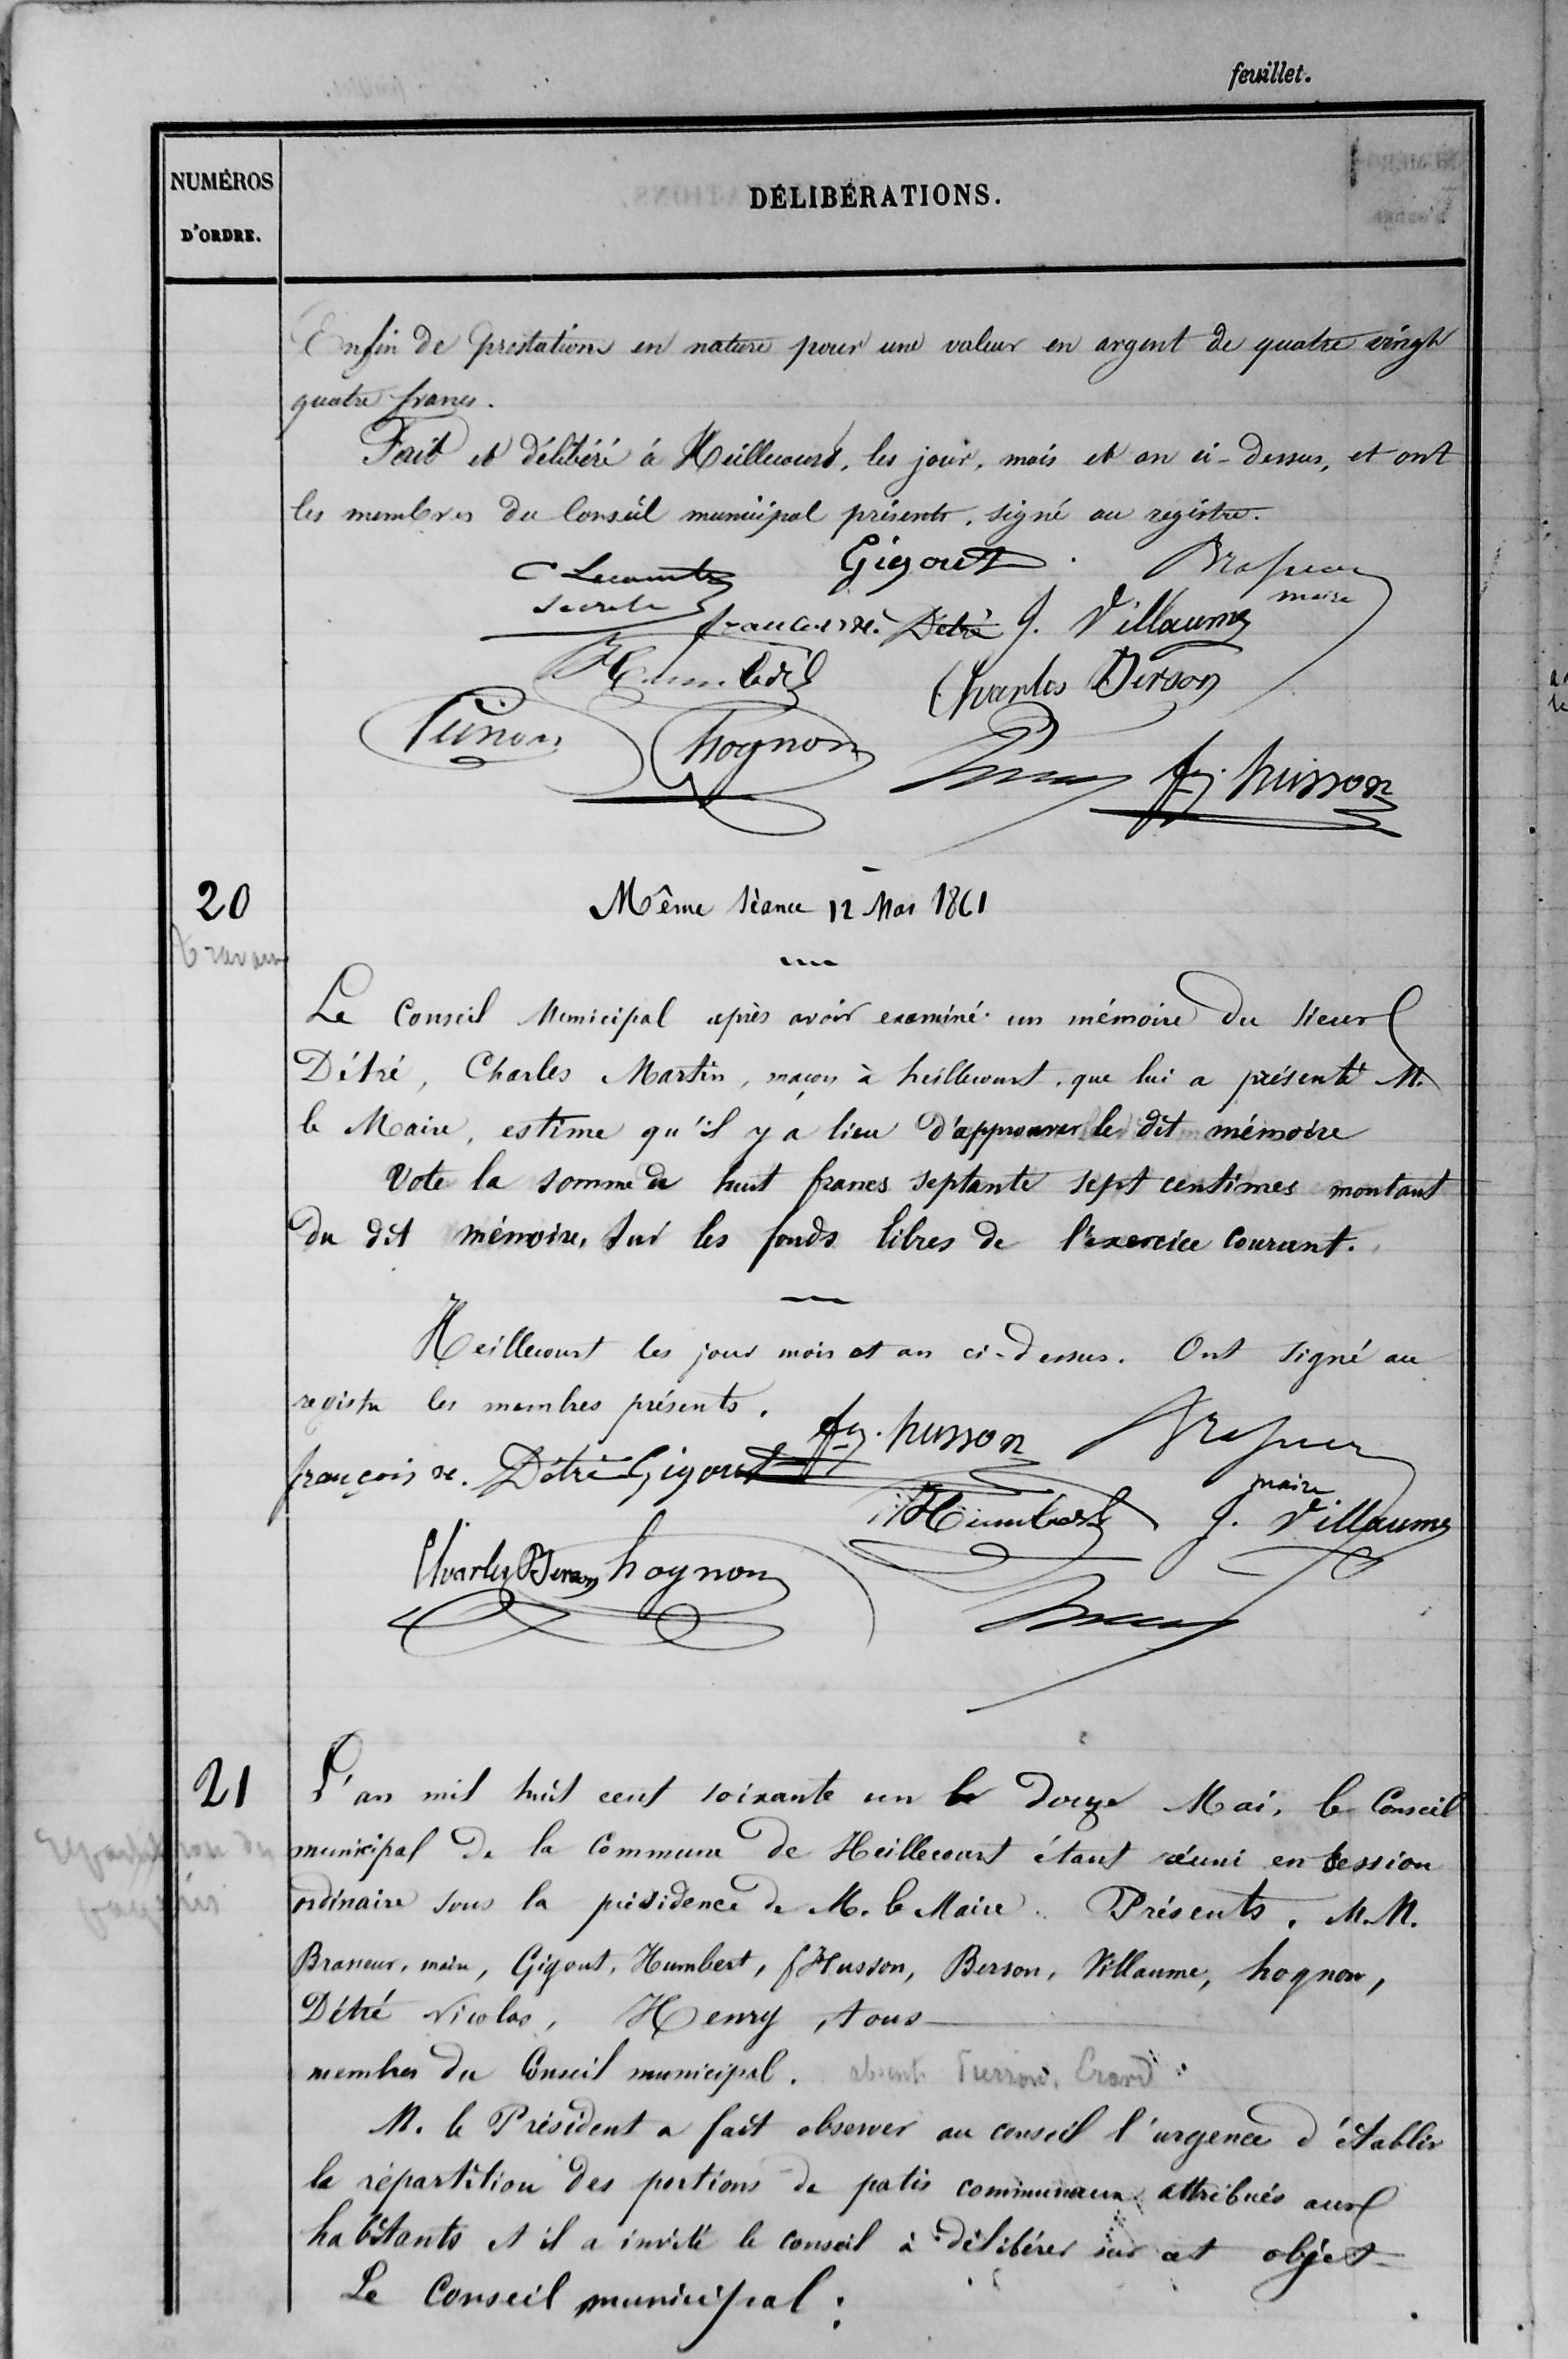 feuillet.
NUMÉROS
D'ORDRE.
DÉLIBÉRATIONS.
Enfin de prestations en nature pour une valeur en argent de quatre vingt
quatre francs.
Fait et délibéré à Heillecourt, les jour, mois et an ci-dessus, et ont
les membres du Conseil municipal présents, signé au registre.
C Lecomte Gigout. Braneur
secrete maire
françois re. Détré J. Villaume
Humbert Charles Berson
hognon fç. husson
20
Travaux
Même séance 12 Mai 1861
Le Conseil Municipal après avoir examiné un mémoire du sieur
Détré, Charles Martin, maçon à heillecourt, que lui a présenté M.
le Maire, estime qu'il y a lieu d'approuver le dit mémoire
Vote la somme de huit francs septante sept centimes montant
du dit mémoire, sur les fonds libres de l'exercice courant.
Heillecourt les jour mois et an ci-dessus. Ont signé au
registre les membres présents.
fç. husson Braneur
françois re. Détré Gigout maire
Humbert J. Villaume
Charles Berson hognon
21
L'an mil huit cent soixante un le douze Mai, le Conseil
municipal de la Commune de Heillecourt étant réuni en session
ordinaire sous la présidence de M. le Maire. Présents, M.M.
Braneur, maire, Gigout, Humbert, f Husson, Berson, Villaume, hognon,
Détré Nicolas, Henry, tous
membres du Conseil municipal. absents Pierron,
M. le Président a fait observer au conseil l'urgence d'établir
la répartition des portions de patis communaux attribués aux
habitants et il a invité le conseil à délibérer sur cet objet
Le Conseil municipal :